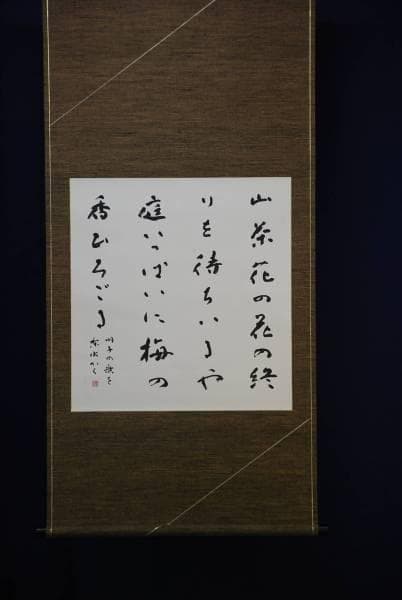 山茶花の花の終
りを待ちいるや
庭いっぱいに梅の
香ひろごる
の歌を
かく